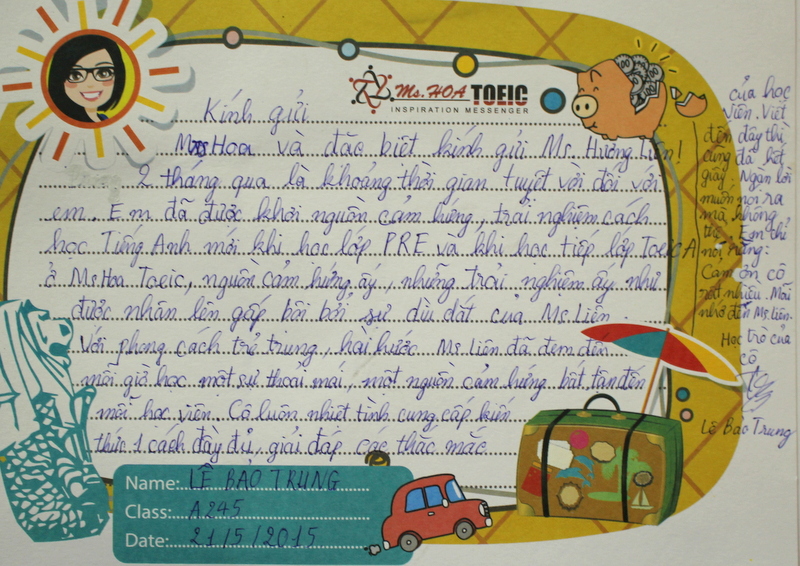 Ms. HOA TOEIC
INSPIRATION MESSENGER
Kính gửi
Ms Hoa và đặc biệt kính gửi Ms. Hương Liên!
2 tháng qua là khoảng thời gian tuyệt vời đối với
em. Em đã được khơi nguồn cảm hứng, trải nghiệm cách
học Tiếng Anh mới khi học lớp PRE và khi học tiếp lớp Toeic A
ở Ms Hoa Toeic, nguồn cảm hứng ấy, những trải nghiệm ấy như
được nhân lên gấp bội bởi sự dìu dắt của Ms. Liên.
Với phong cách trẻ trung, hài hước Ms. Liên đã đem đến
mỗi giờ học một sự thoải mái, một nguồn cảm hứng bất tận đến
mỗi học viên. Cô luôn nhiệt tình cung cấp kiến
thức 1 cách đầy đủ, giải đáp các thắc mắc
của học
viên. Viết
đến đây thì
cũng đã hết
giấy. Ngàn lời
muốn nói ra
mà không
Em chỉ
nói rằng:
Cảm ơn cô
rất nhiều. Mãi
nhớ đến Ms. Liên.
Học trò của
cô
Lê Bảo Trung
Name: LÊ BẢO TRUNG
Class: A245
Date: 21/5/2015